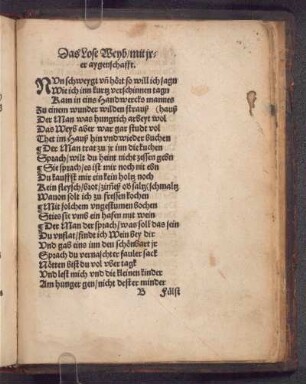 Das Lose Weyb / mit jr-
er aygenschafft.
NVn schweygt vñ hört so will ich sagn
Wie ich inn kurtz verschinnen tagn
Kam in eins Handwercks mannes
Zu einem wunder wilden strauß (hauß
Der Man was hungrich arbeyt wol
Das Weyb aber war gar studt vol
Thet im Hauß hin vnd wieder suchen
¶ Der Man trat zu jr inn die kuchen
Sprach / wilt du heint nicht zessen gebn
¶ Sie sprach / es ist mir noch nit ebn
Du kauffst mir ein kein holtz noch
Kein fleysch / brot / zimeß ob saltz / schmaltz
Wauon solt ich zu fressen kochen
¶ Mit solchem vngestumen bochen
Sties sie vmb ein hafen mit wein
¶ Der Man der sprach / was soll das sein
Du vnflat / find ich Wein bey dir
Vnd gab ens inn den schönbart jr
Sprach du vernaschter fauler sack
Nötten bist du vol vber tagk
Vnd lest mich vnd die kleinen kinder
Am hunger gen / nicht dest er minder
B Fülst